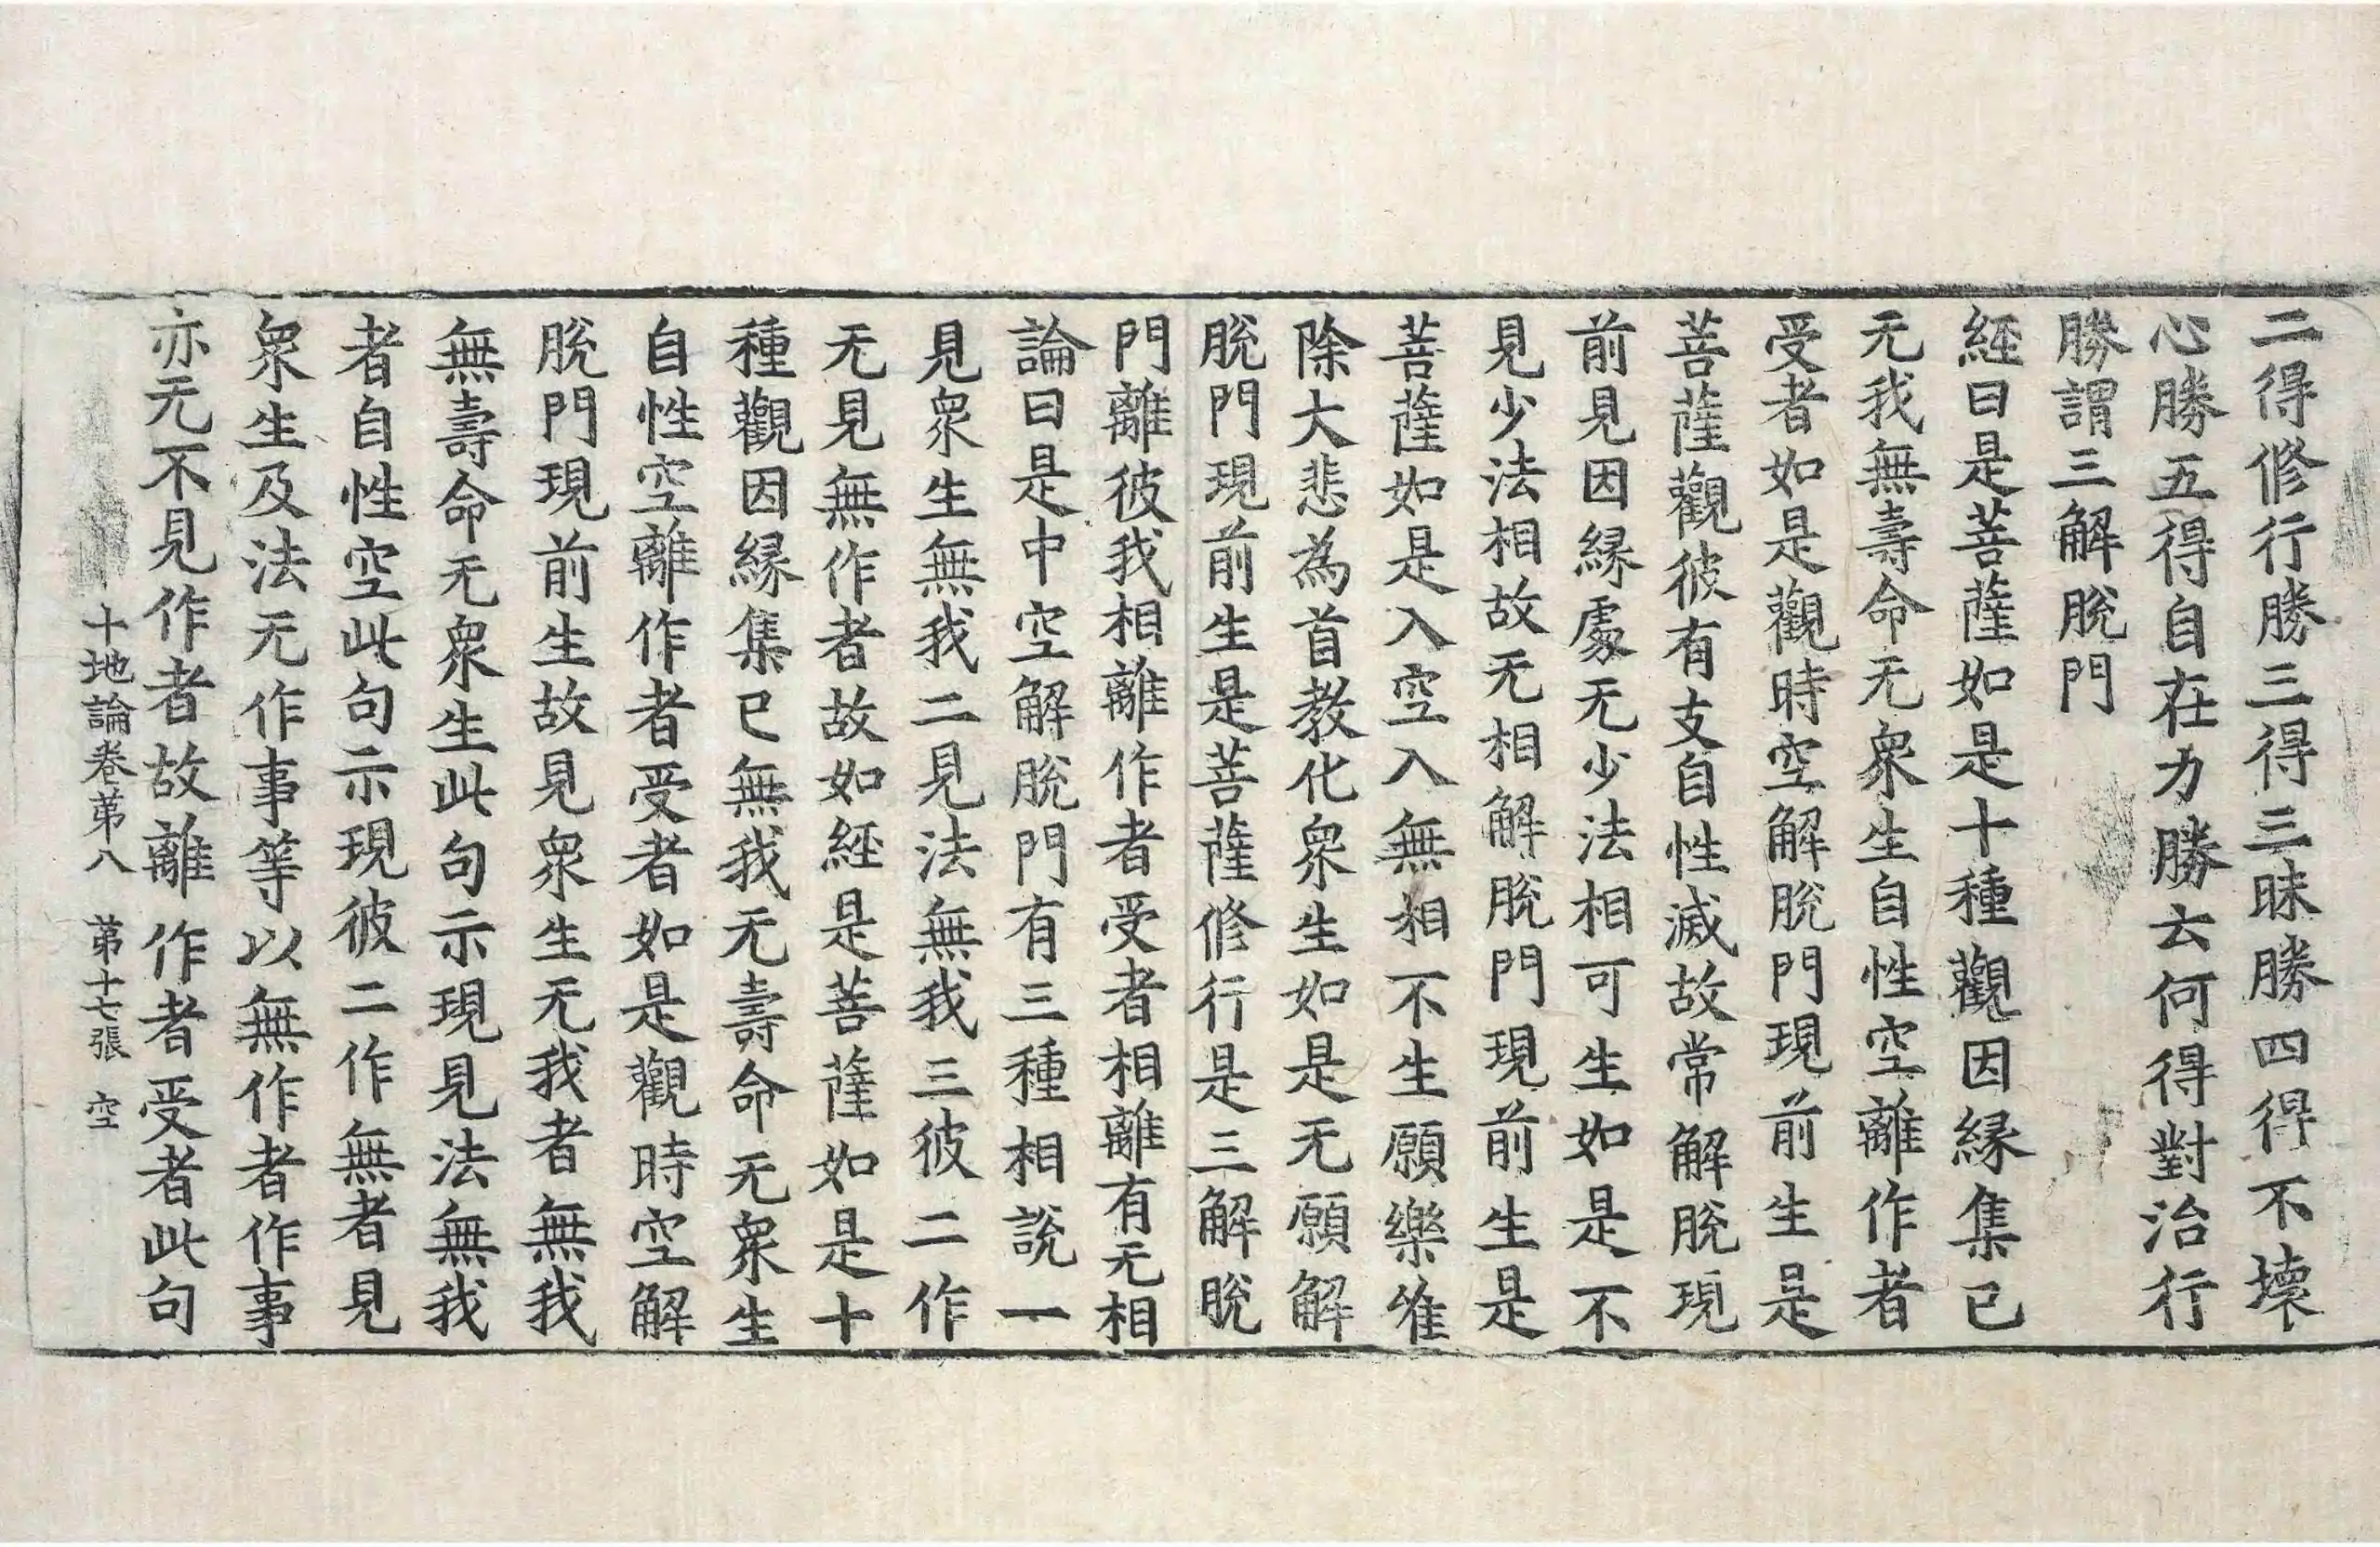 二得修行勝三得三昧勝四得不壞
心勝五得自在力勝云何得對治行
勝謂三解脫門
經曰是菩薩如是十種觀因縁集已
无我無壽命无衆生自性空離作者
受者如是觀時空解脫門現前生是
菩薩觀彼有支自性滅故常解脫現
前見因縁處无少法相可生如是不
見少法相故无相解脫門現前生是
菩薩如是入空入無相不生願樂唯
除大悲為首教化衆生如是无願解
脫門現前生是菩薩修行是三解脫
門離彼我相離作者受者相離有无相
論曰是中空解脫門有三種相說一
見衆生無我二見法無我三彼二作
无見無作者故如経是菩薩如是十
種觀因縁集已無我无壽命无衆生
自性空離作者受者如是觀時空解
脫門現前生故見衆生无我者無我
無壽命无衆生此句示現見法無我
者自性空此句示現彼二作無者見
衆生及法无作事等以無作者作事
亦无不見作者故離作者受者此句
十地論卷苐八 苐十七張 空